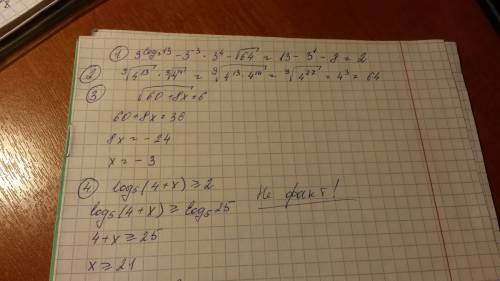 ① 3^{log₃13} - 3^{-3} · 3^4 - √64 = 13 - 3^1 - 8 = 2
② ⁹√4^{13} · ⁹√4^{14} = ⁹√4^{13} · 4^{14} = ⁹√4^{27} = 4^3 = 64
③ √60 + 8x = 6
60 + 8x = 36
8x = -24
x = -3
④ log₅(4+x) ≥ 2
log₅(4+x) ≥ log₅25
Не факт!
4+x ≥ 25
x ≥ 21